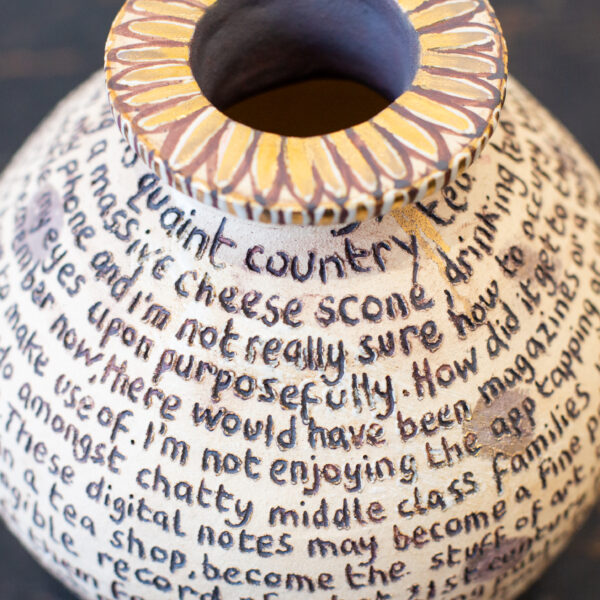 quaint country tea
a massive cheese scone drinking tea
phone and I'm not really sure how to occupy
my eyes upon purposefully. How did it get to
now, there would have been magazines or a
to make use of. I'm not enjoying the app tapping of
do amongst chatty middle class families
These digital notes may become a fine
in a tea shop, become the stuff of art.
record 21st century